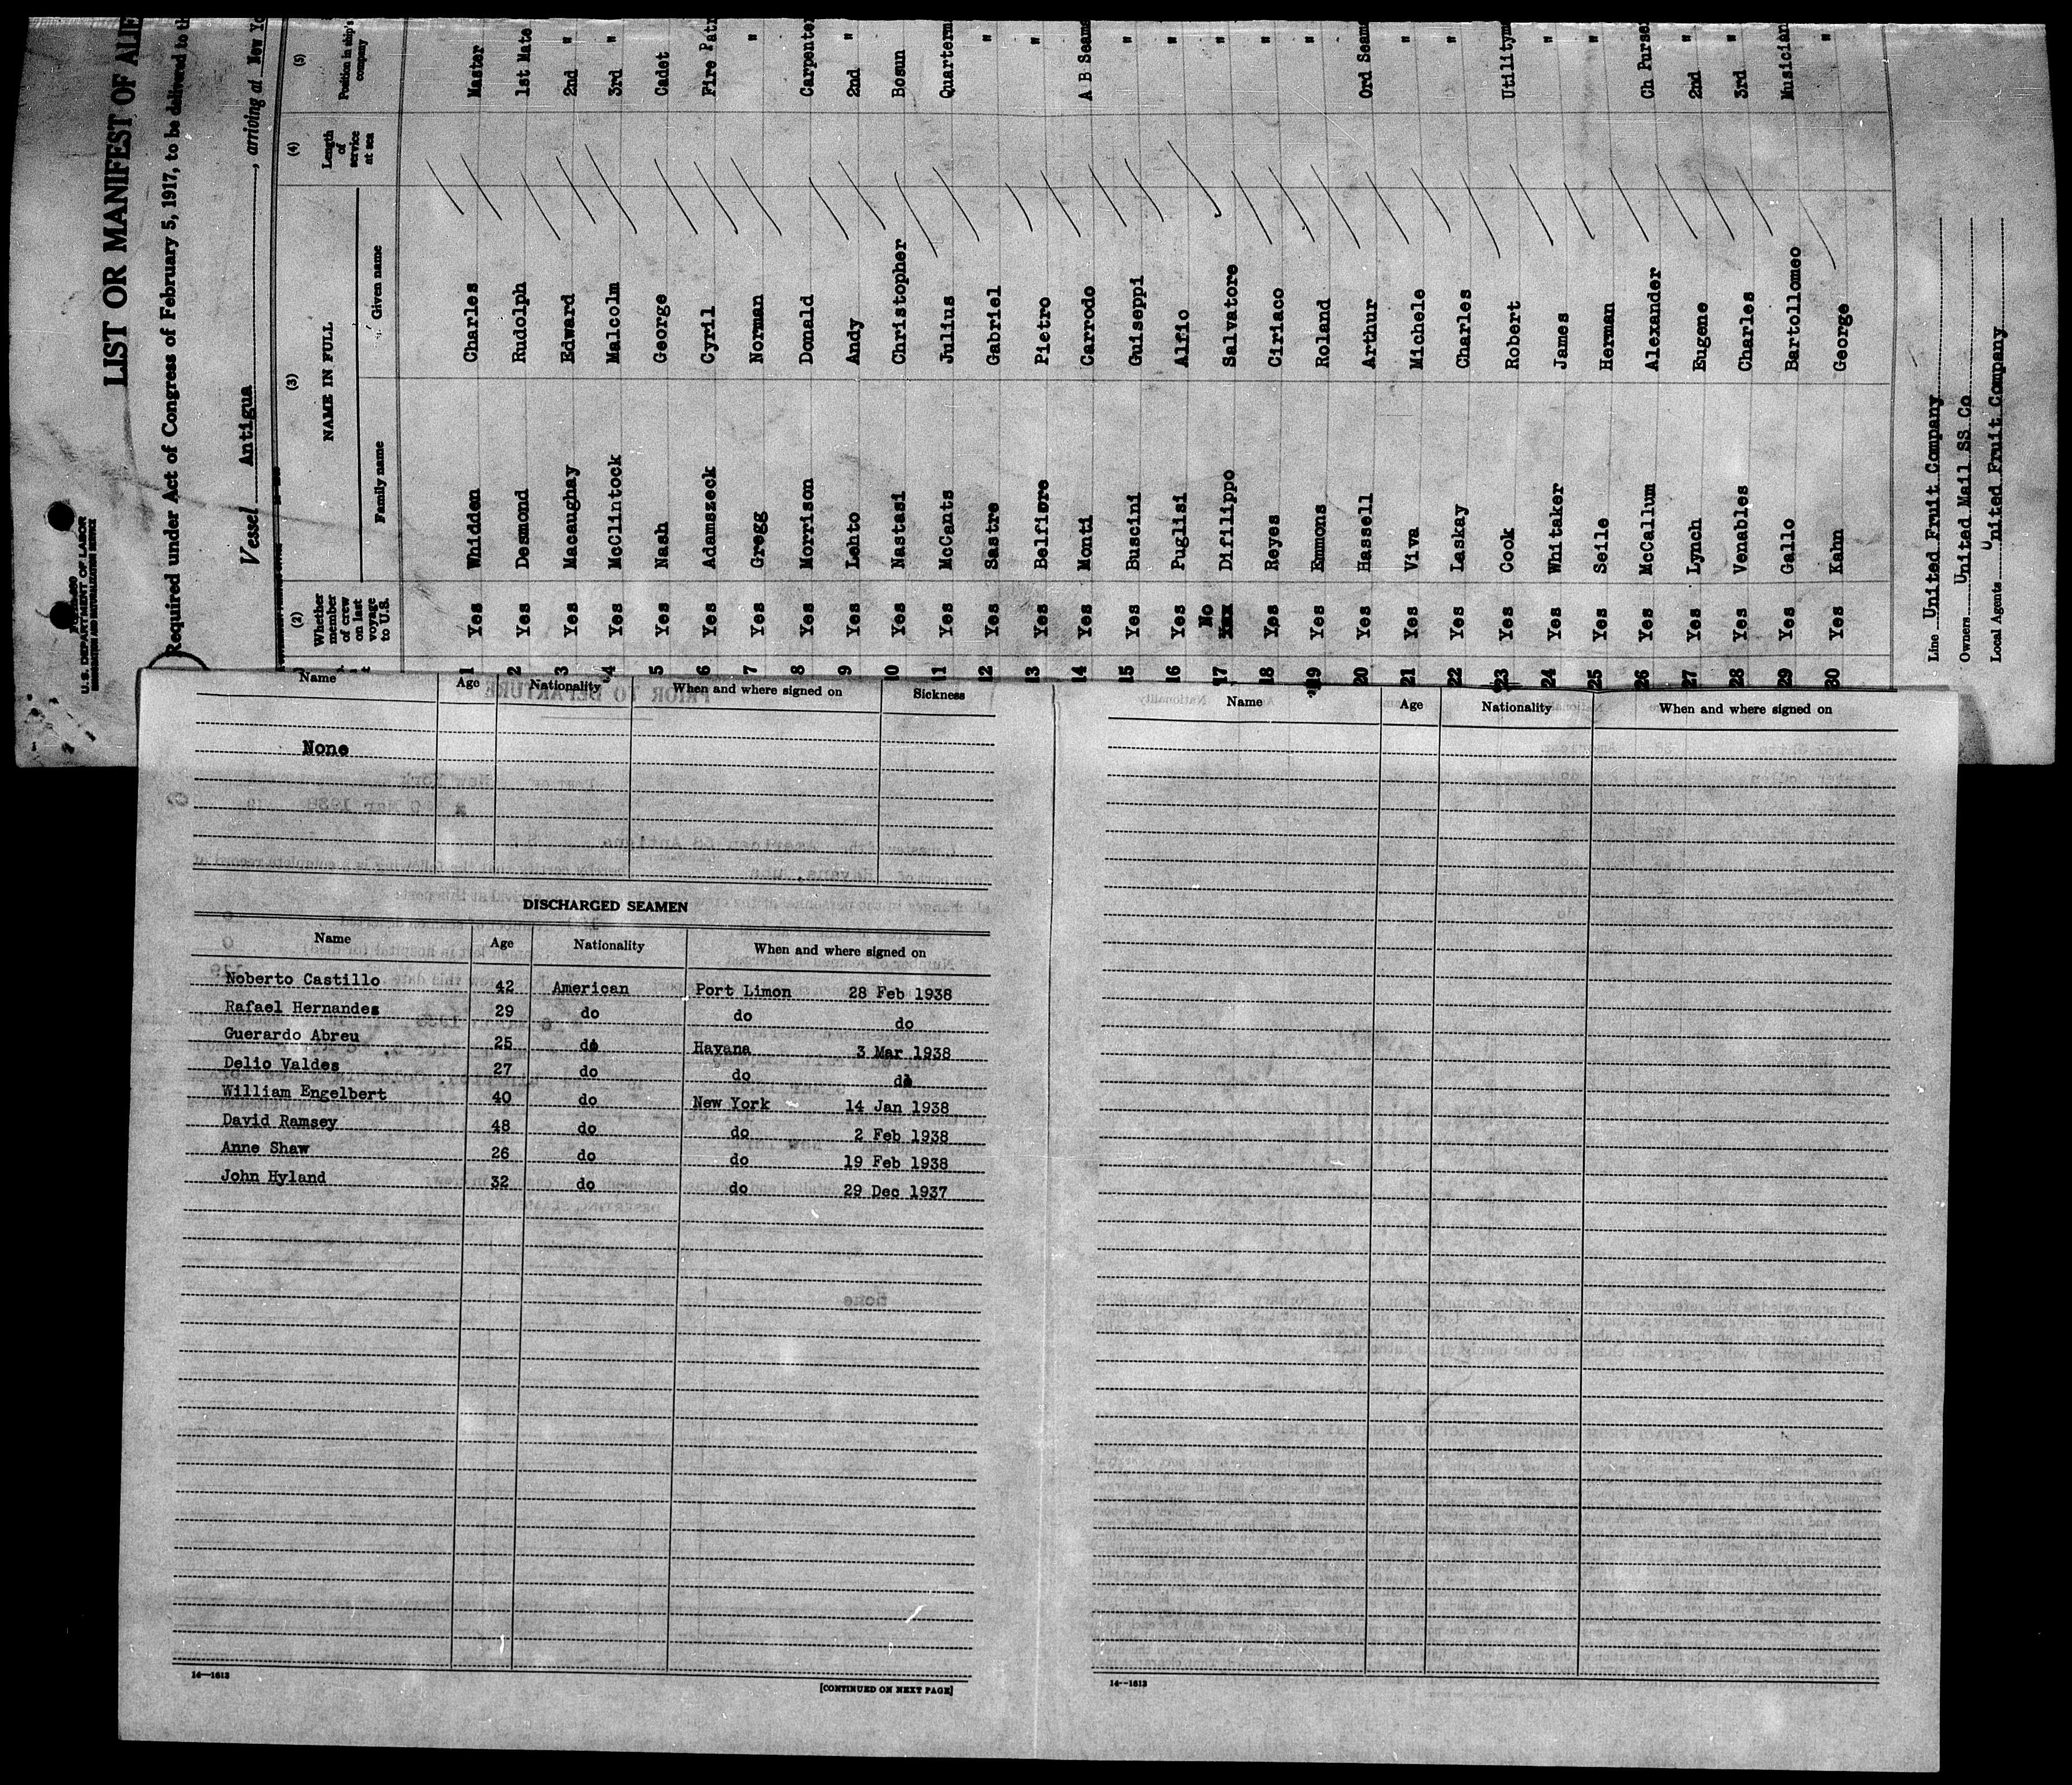 U.S. DEPARTMENT OF LABOR
IMMIGRATION AND NATURALIZATION SERVICE
LIST OR MANIFEST OF ALIE
Required under Act of Congress of February 5, 1917, to be delivered to th
Vessel Antigua, arriving at New Yo
(2) (3) (4) (5)
Whether member of crew on last voyage to U.S. NAME IN FULL Length of service at sea Position in ship's company
Family name Given name
1 Yes Whidden Charles Master
2 Yes Desmond Rudolph 1st Mate
3 Yes Macaughay Edward 2nd "
4 Yes McClintock Malcolm 3rd "
5 Yes Nash George Cadet
6 Yes Adamszeck Cyril Fire Patr
7 Yes Gregg Norman "
8 Yes Morrison Donald Carpenter
9 Yes Lehto Andy 2nd "
10 Yes Nastasi Christopher Bosun
11 Yes McCants Julius Quarterm
12 Yes Sastre Gabriel "
13 Yes Belfiore Pietro "
14 Yes Monti Carrodo A B Seam
15 Yes Buscini Guiseppi "
16 Yes Puglisi Alfio "
17 No Difilippo Salvatore "
18 Yes Reyes Ciriaco "
19 Yes Emmons Roland "
20 Yes Hassell Arthur Ord Seam
21 Yes Viva Michele "
22 Yes Laskay Charles "
23 Yes Cook Robert Utilitym
24 Yes Whittaker James "
25 Yes Seile Herman "
26 Yes McCallum Alexander Ch Purse
27 Yes Lynch Eugene 2nd "
28 Yes Venables Charles 3rd "
29 Yes Gallo Bartollomeo Musician
30 Yes Kahn George "
Line United Fruit Company
Owners United Mail SS Co
Local Agents United Fruit Company
Name Age Nationality When and where signed on Sickness
None
DISCHARGED SEAMEN
Name Age Nationality When and where signed on
Noberto Castillo 42 American Port Limon 28 Feb 1938
Rafael Hernandes 29 do do do
Guerardo Abreu 25 do Havana 3 Mar 1938
Delio Valdes 27 do do do
William Engelbert 40 do New York 14 Jan 1938
David Ramsey 48 do do 2 Feb 1938
Anne Shaw 26 do do 19 Feb 1938
John Hyland 32 do do 29 Dec 1937
14—1613
[CONTINUED ON NEXT PAGE]
Name Age Nationality When and where signed on
14—1613